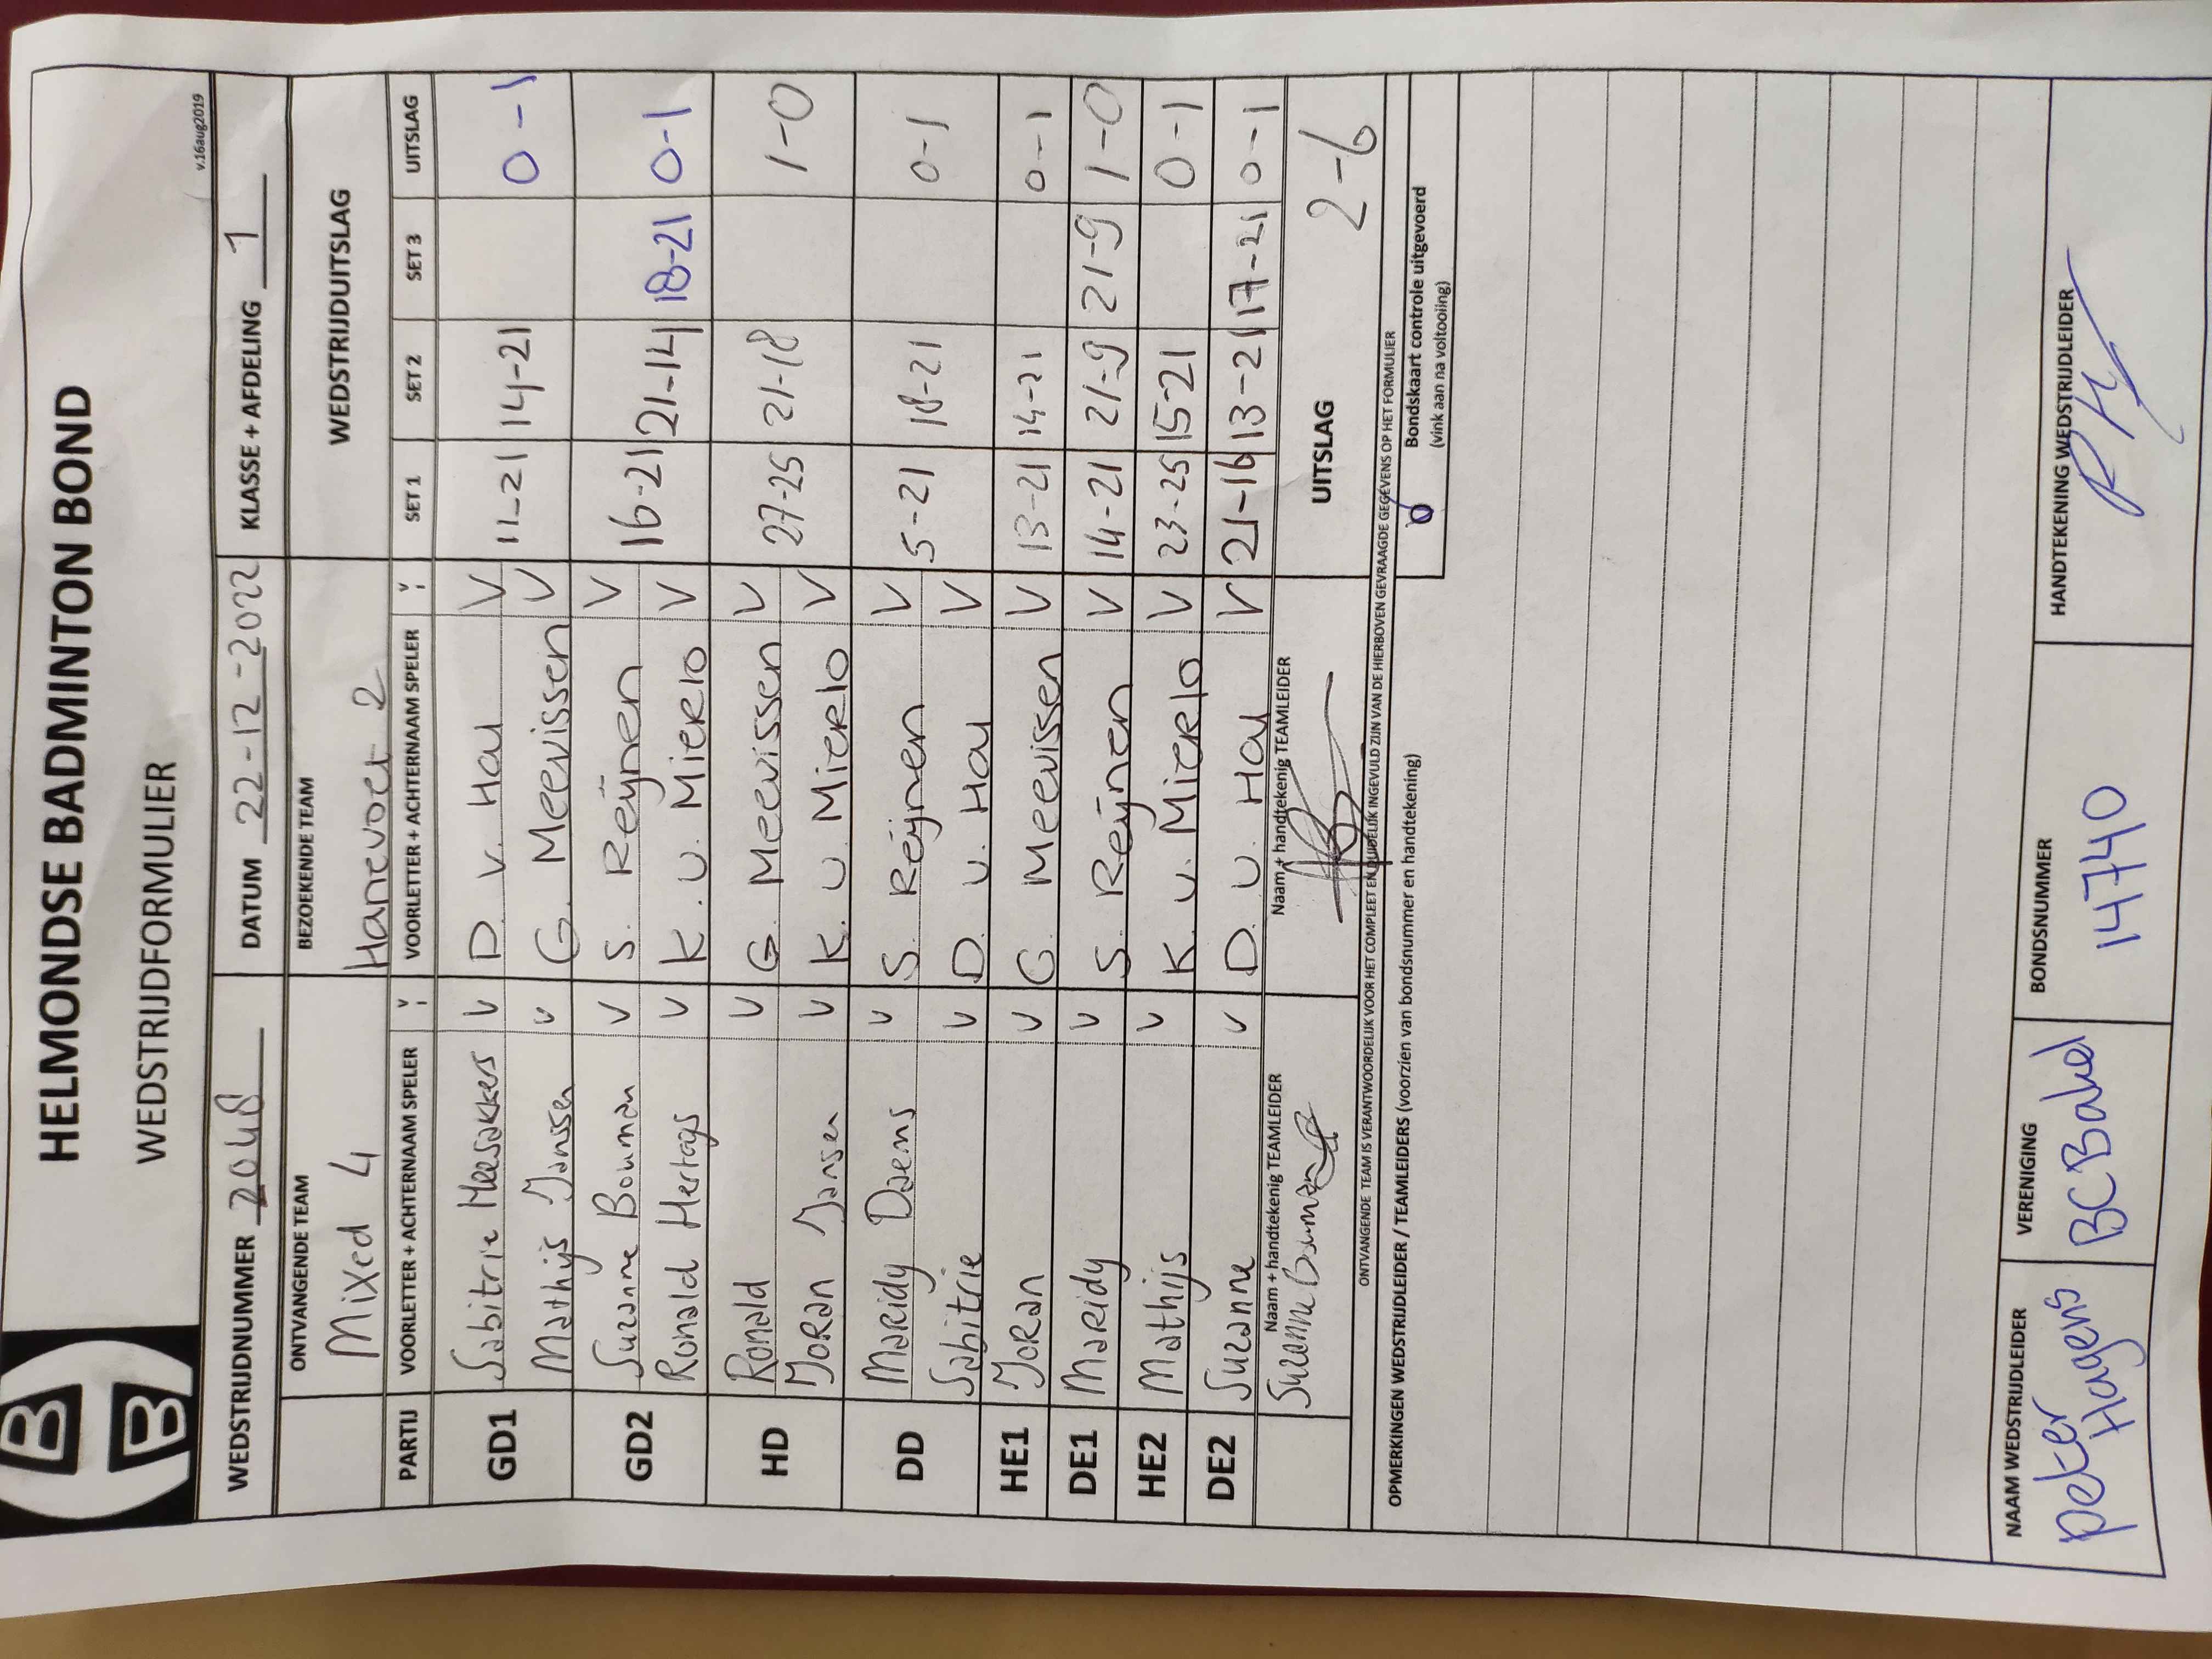 HELMONDSE BADMINTON BOND
WEDSTRIJDFORMULIER
v.16aug2019
WEDSTRIJDNUMMER 2048 DATUM 22-12-2022 KLASSE + AFDELING 1
ONTVANGENDE TEAM BEZOEKENDE TEAM WEDSTRIJDUITSLAG
Mixed 4 Hanevoet 2
PARTIJ VOORLETTER + ACHTERNAAM SPELER V VOORLETTER + ACHTERNAAM SPELER V SET 1 SET 2 SET 3 UITSLAG
GD1 Sabitrie Meesakkers V D. v. Hal V 11-21 14-21 0-1
Mathijs Janssen V G. Meevissen V
GD2 Suzanne Bouman V S. Reijnen V 16-21 21-14 18-21 0-1
Ronald Hertogs V K. v. Mierlo V
HD Ronald V G. Meevissen V 27-25 21-18 1-0
Joran Jansen V K. v. Mierlo V
DD Mareidy Daems V S. Reijnen V 5-21 18-21 0-1
Sabitrie V D. v. Hal V
HE1 Joran V G. Meevissen V 13-21 14-21 0-1
DE1 Mareidy V S. Reijnen V 14-21 21-9 21-9 1-0
HE2 Mathijs V K. v. Mierlo V 23-25 15-21 0-1
DE2 Suzanne V D. v. Hal V 21-16 13-21 17-21 0-1
Naam + handtekenig TEAMLEIDER Naam + handtekenig TEAMLEIDER UITSLAG 2-6
Suzanne Bouman
ONTVANGENDE TEAM IS VERANTWOORDELIJK VOOR HET COMPLEET EN DUIDELIJK INGEVULD ZIJN VAN DE HIERBOVEN GEVRAAGDE GEGEVENS OP HET FORMULIER
OPMERKINGEN WEDSTRIJDLEIDER / TEAMLEIDERS (voorzien van bondsnummer en handtekening)
Bondskaart controle uitgevoerd
(vink aan na voltooiing)
NAAM WEDSTRIJDLEIDER VERENIGING BONDSNUMMER HANDTEKENING WEDSTRIJDLEIDER
peter Hagens BC Bakel 14740